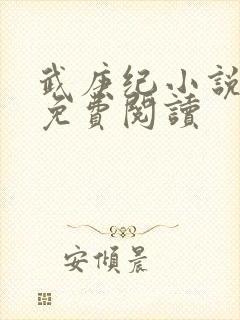 武庚纪小說
免費閱讀
安傾晨